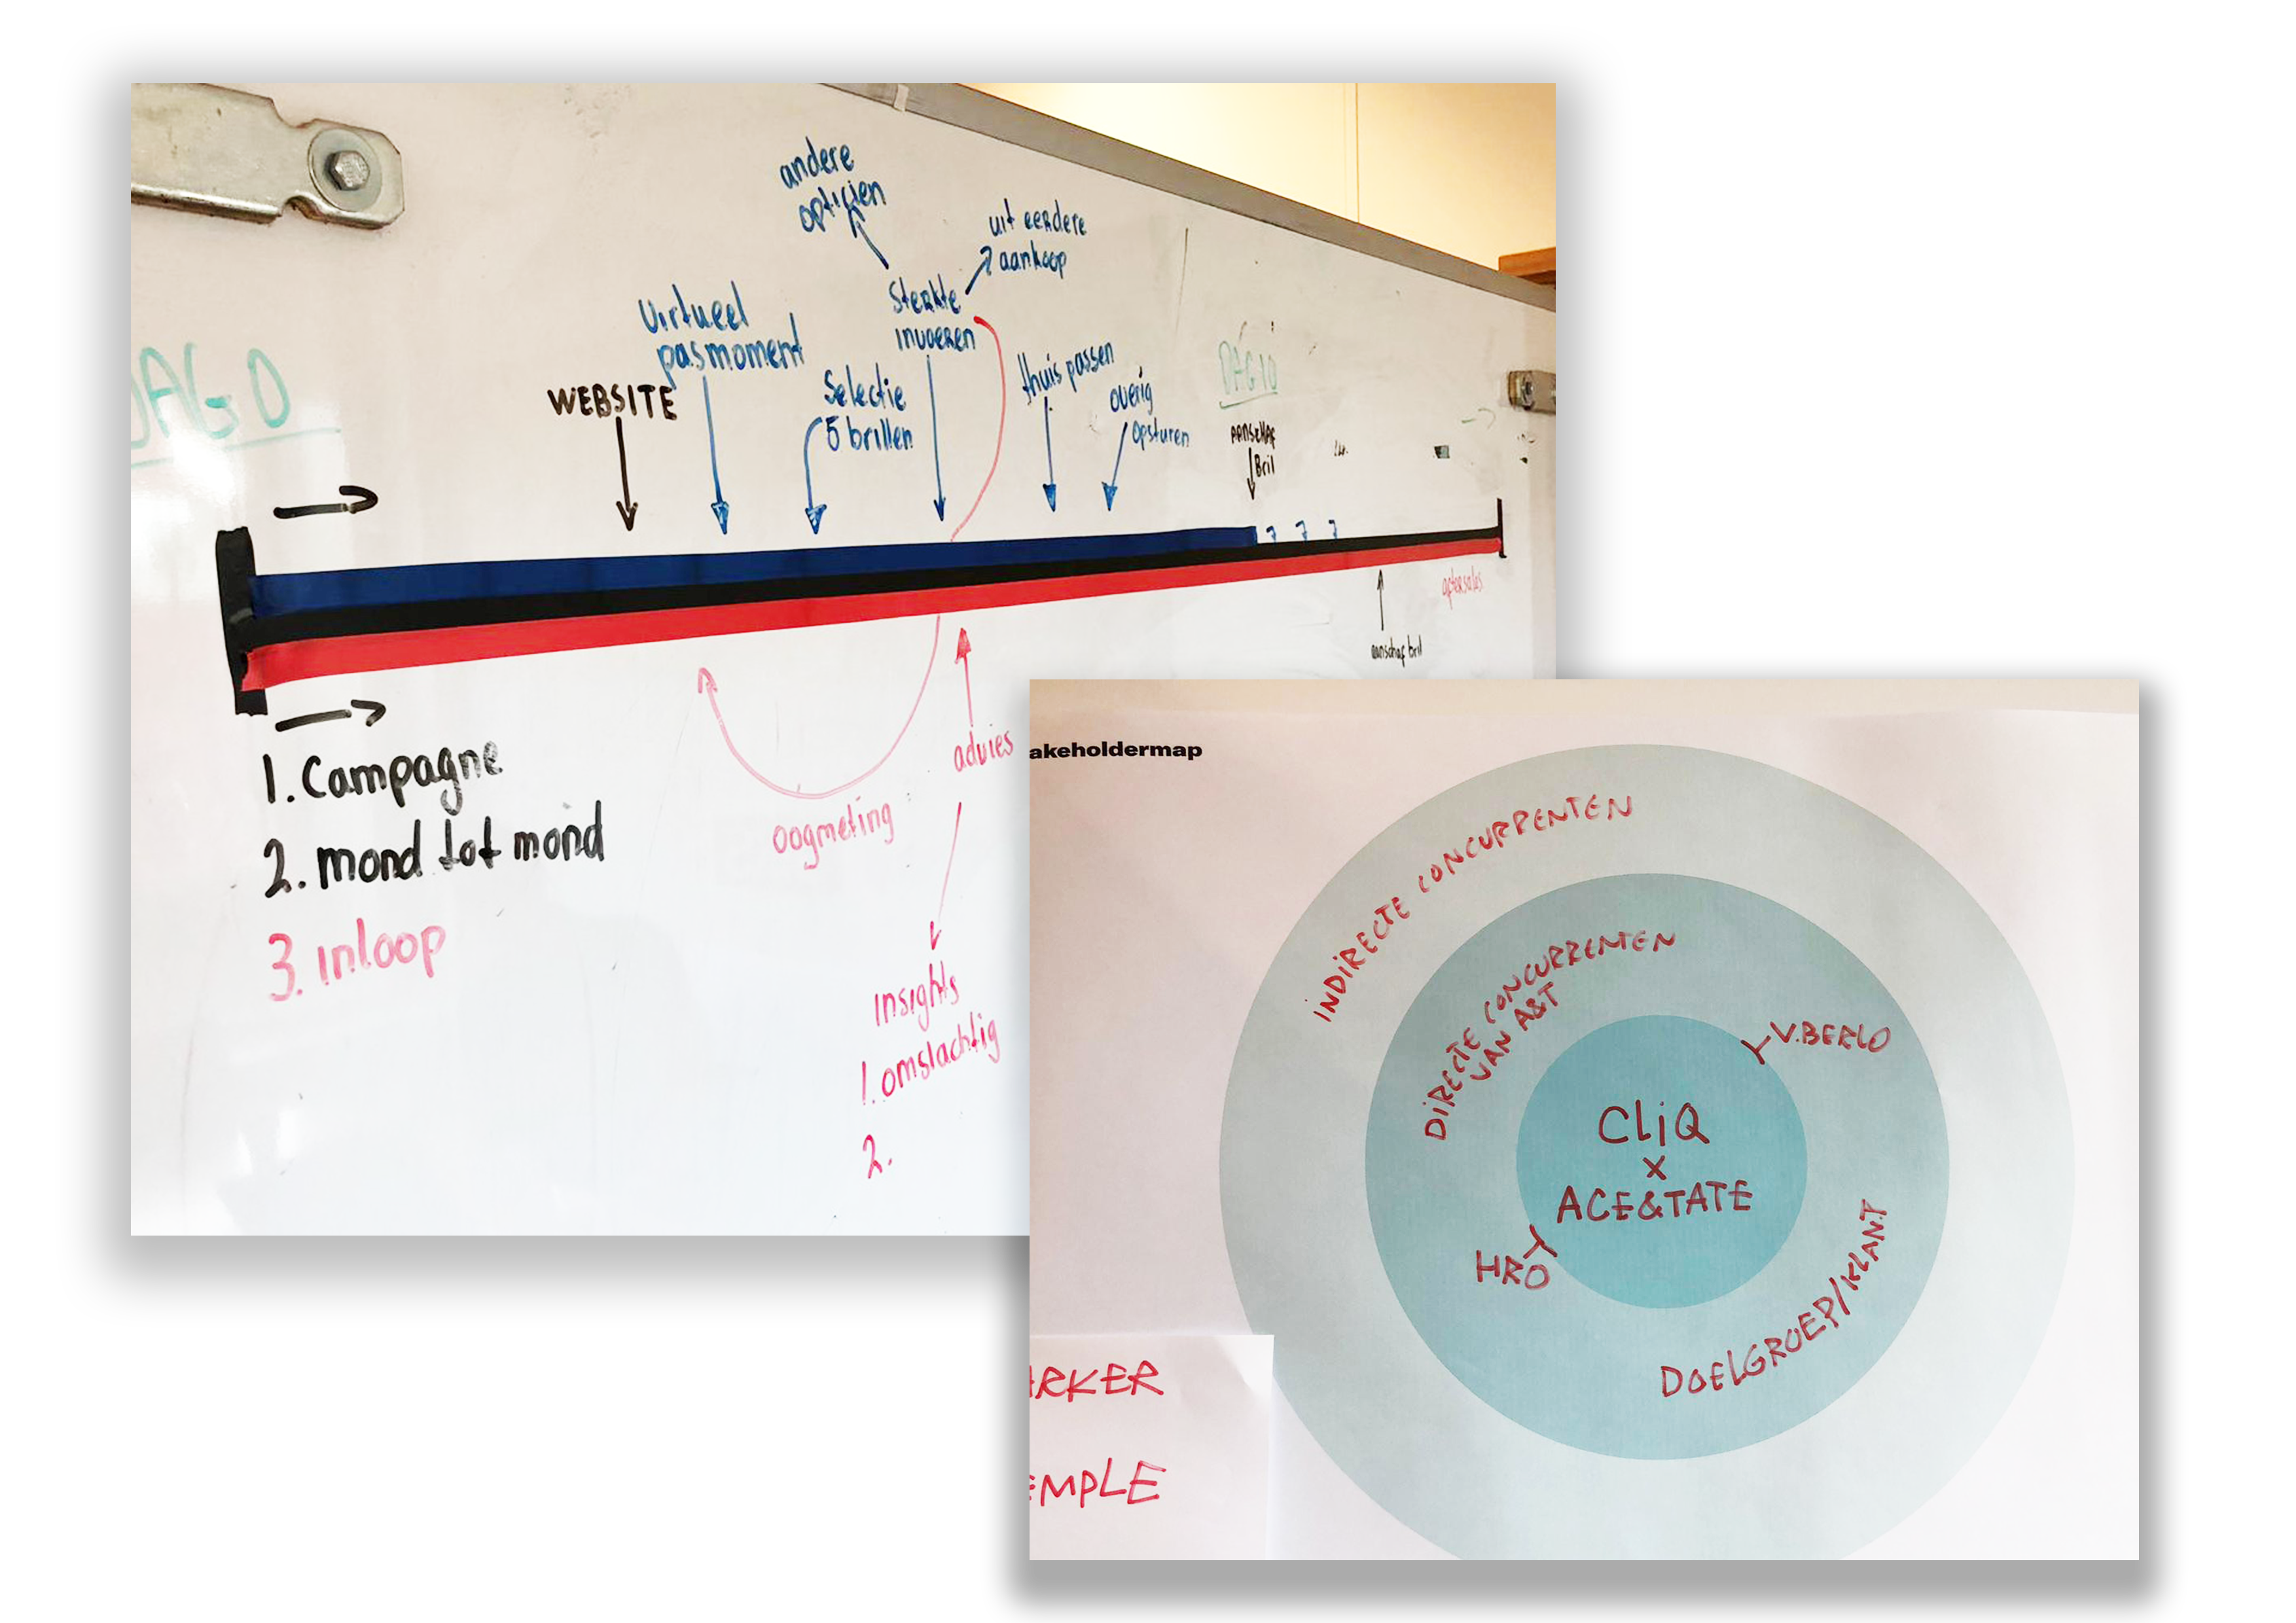 andere
opticien
uit eerdere
aankoop
Sterkte
invoeren
Virtueel
pasmoment
WEBSITE
Selectie
5 brillen
thuis passen
overig
opsturen
DAG 10
AANSCHAF
Bril
DAG 0
aftersales
aanschaf bril
1. Campagne
2. mond tot mond
3. inloop
oogmeting
advies
insights
1. omslachtig
2.
akeholdermap
INDIRECTE CONCURRENTEN
DIRECTE CONCURRENTEN
VAN A&T
V.BERLO
CLiQ
x
ACE&TATE
HRO
DOELGROEP/KLANT
ARKER
EMPLE